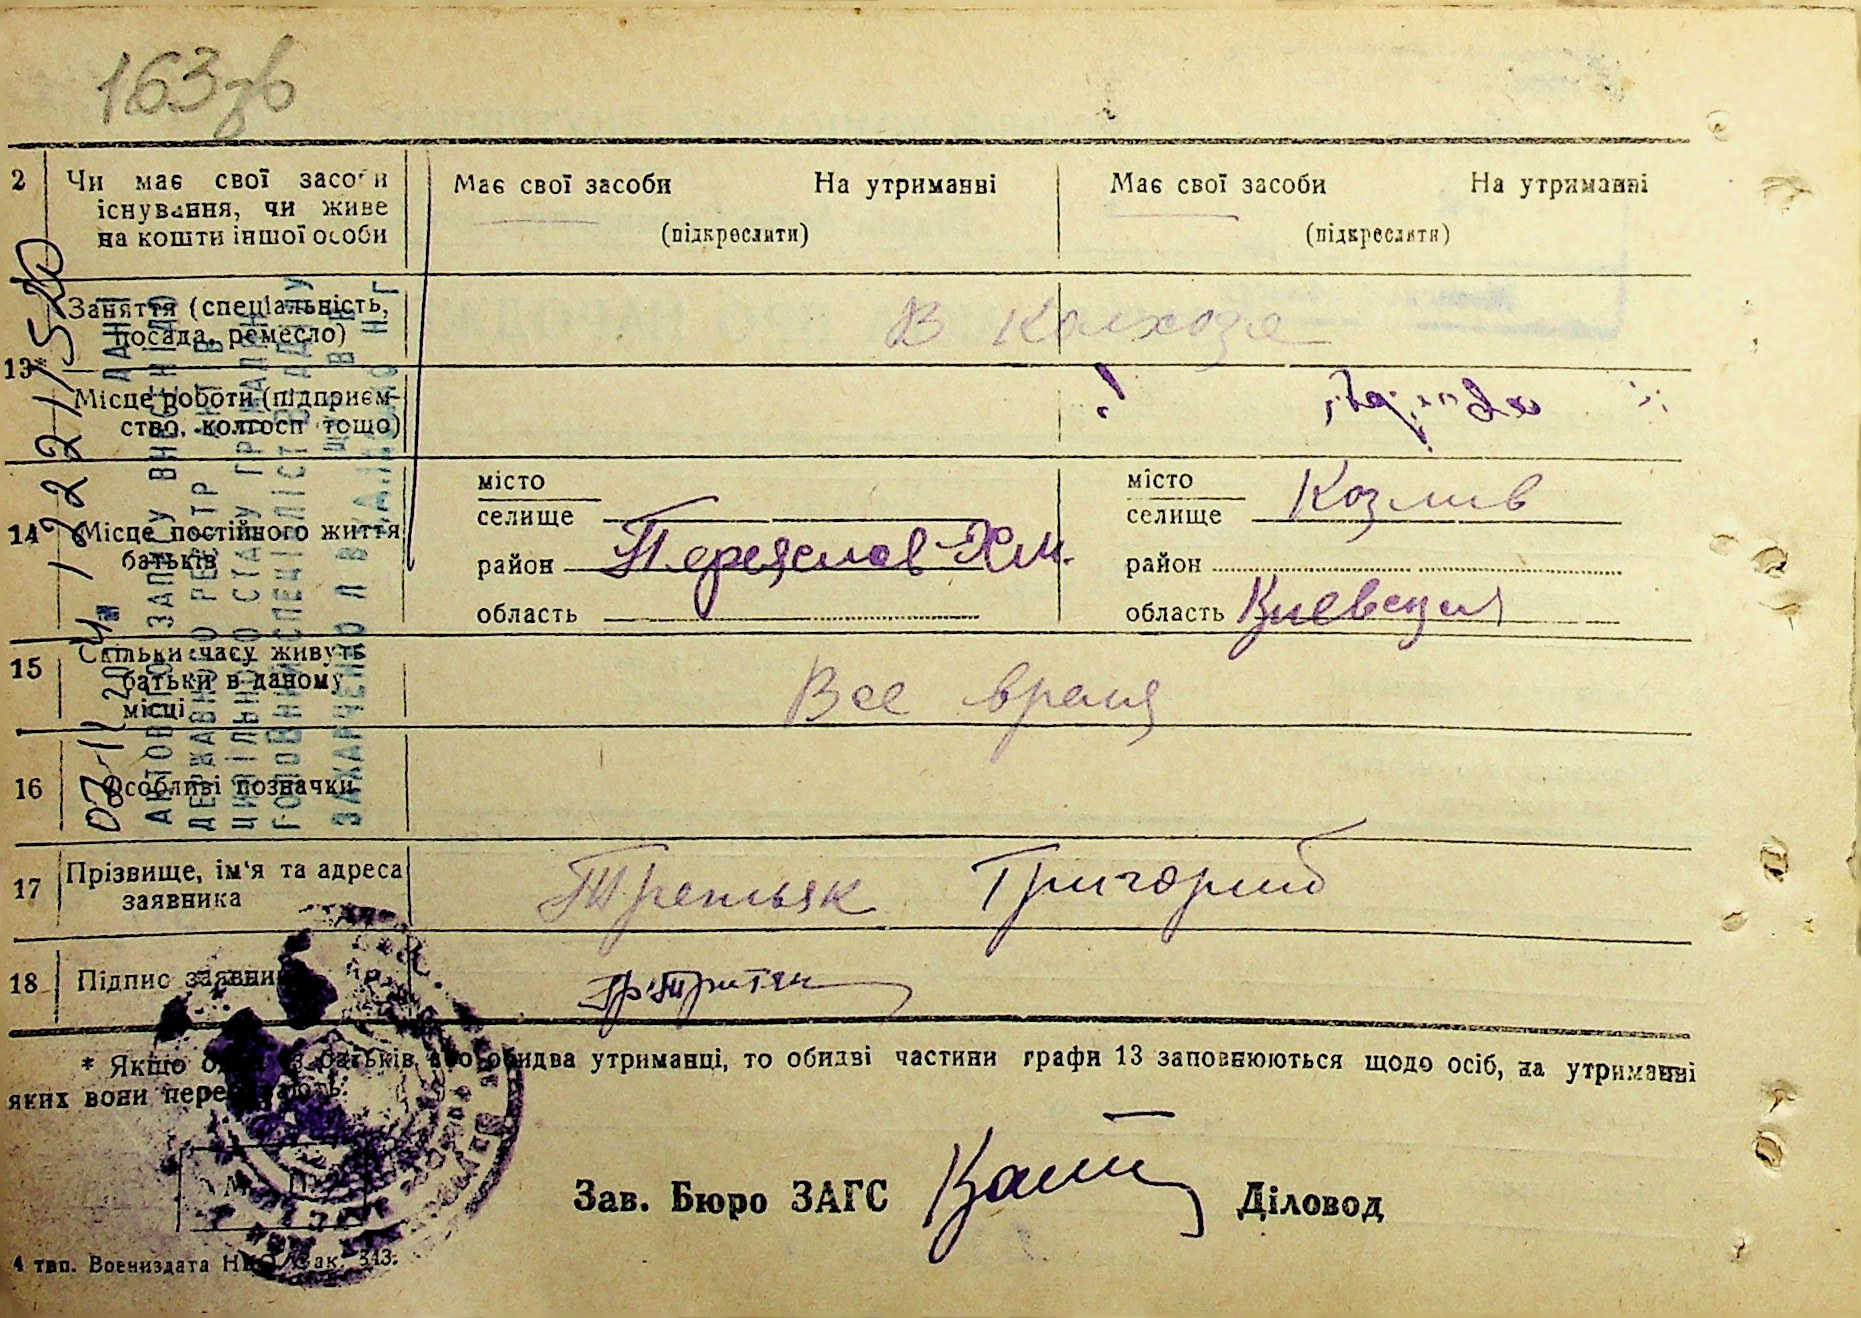 163зв
2 Чи має свої засоби Має свої засоби На утриманні Має свої засоби На утриманні
існування, чи живе (підкреслити) (підкреслити)
на кошти іншої особи
Заняття (спеціальність, В колхозе
посада, ремесло)
13*
Місце роботи (підприєм-
ство, колгосп тощо)
місто місто Козлив
селище селище
14 Місце постійного життя район Переяслав-Хм. район
батьків
область область Киевская
15 Скільки часу живуть
батьки в даному Все время
місці
16 Особливі позначки
17 Прізвище, ім'я та адреса Третьяк Григорий
заявника
18 Підпис
* Якщо батьків або обидва утриманці, то обидві частини графи 13 заповнюються щодо осіб, на утриманні
яких вони
М. П.
Зав. Бюро ЗАГС Діловод
4 тип. Воениздата НКО Зак. 343.
АКТОВОГО ЗАПИСУ ВНЕСЕНІ ДО
ДЕРЖАВНОГО РЕЄСТРУ АКТІВ
ЦИВІЛЬНОГО СТАНУ ГРОМАДЯН
ГОЛОВНИЙ СПЕЦІАЛІСТ ВІДДІЛУ
ЗАХАРЧЕНКО Л В